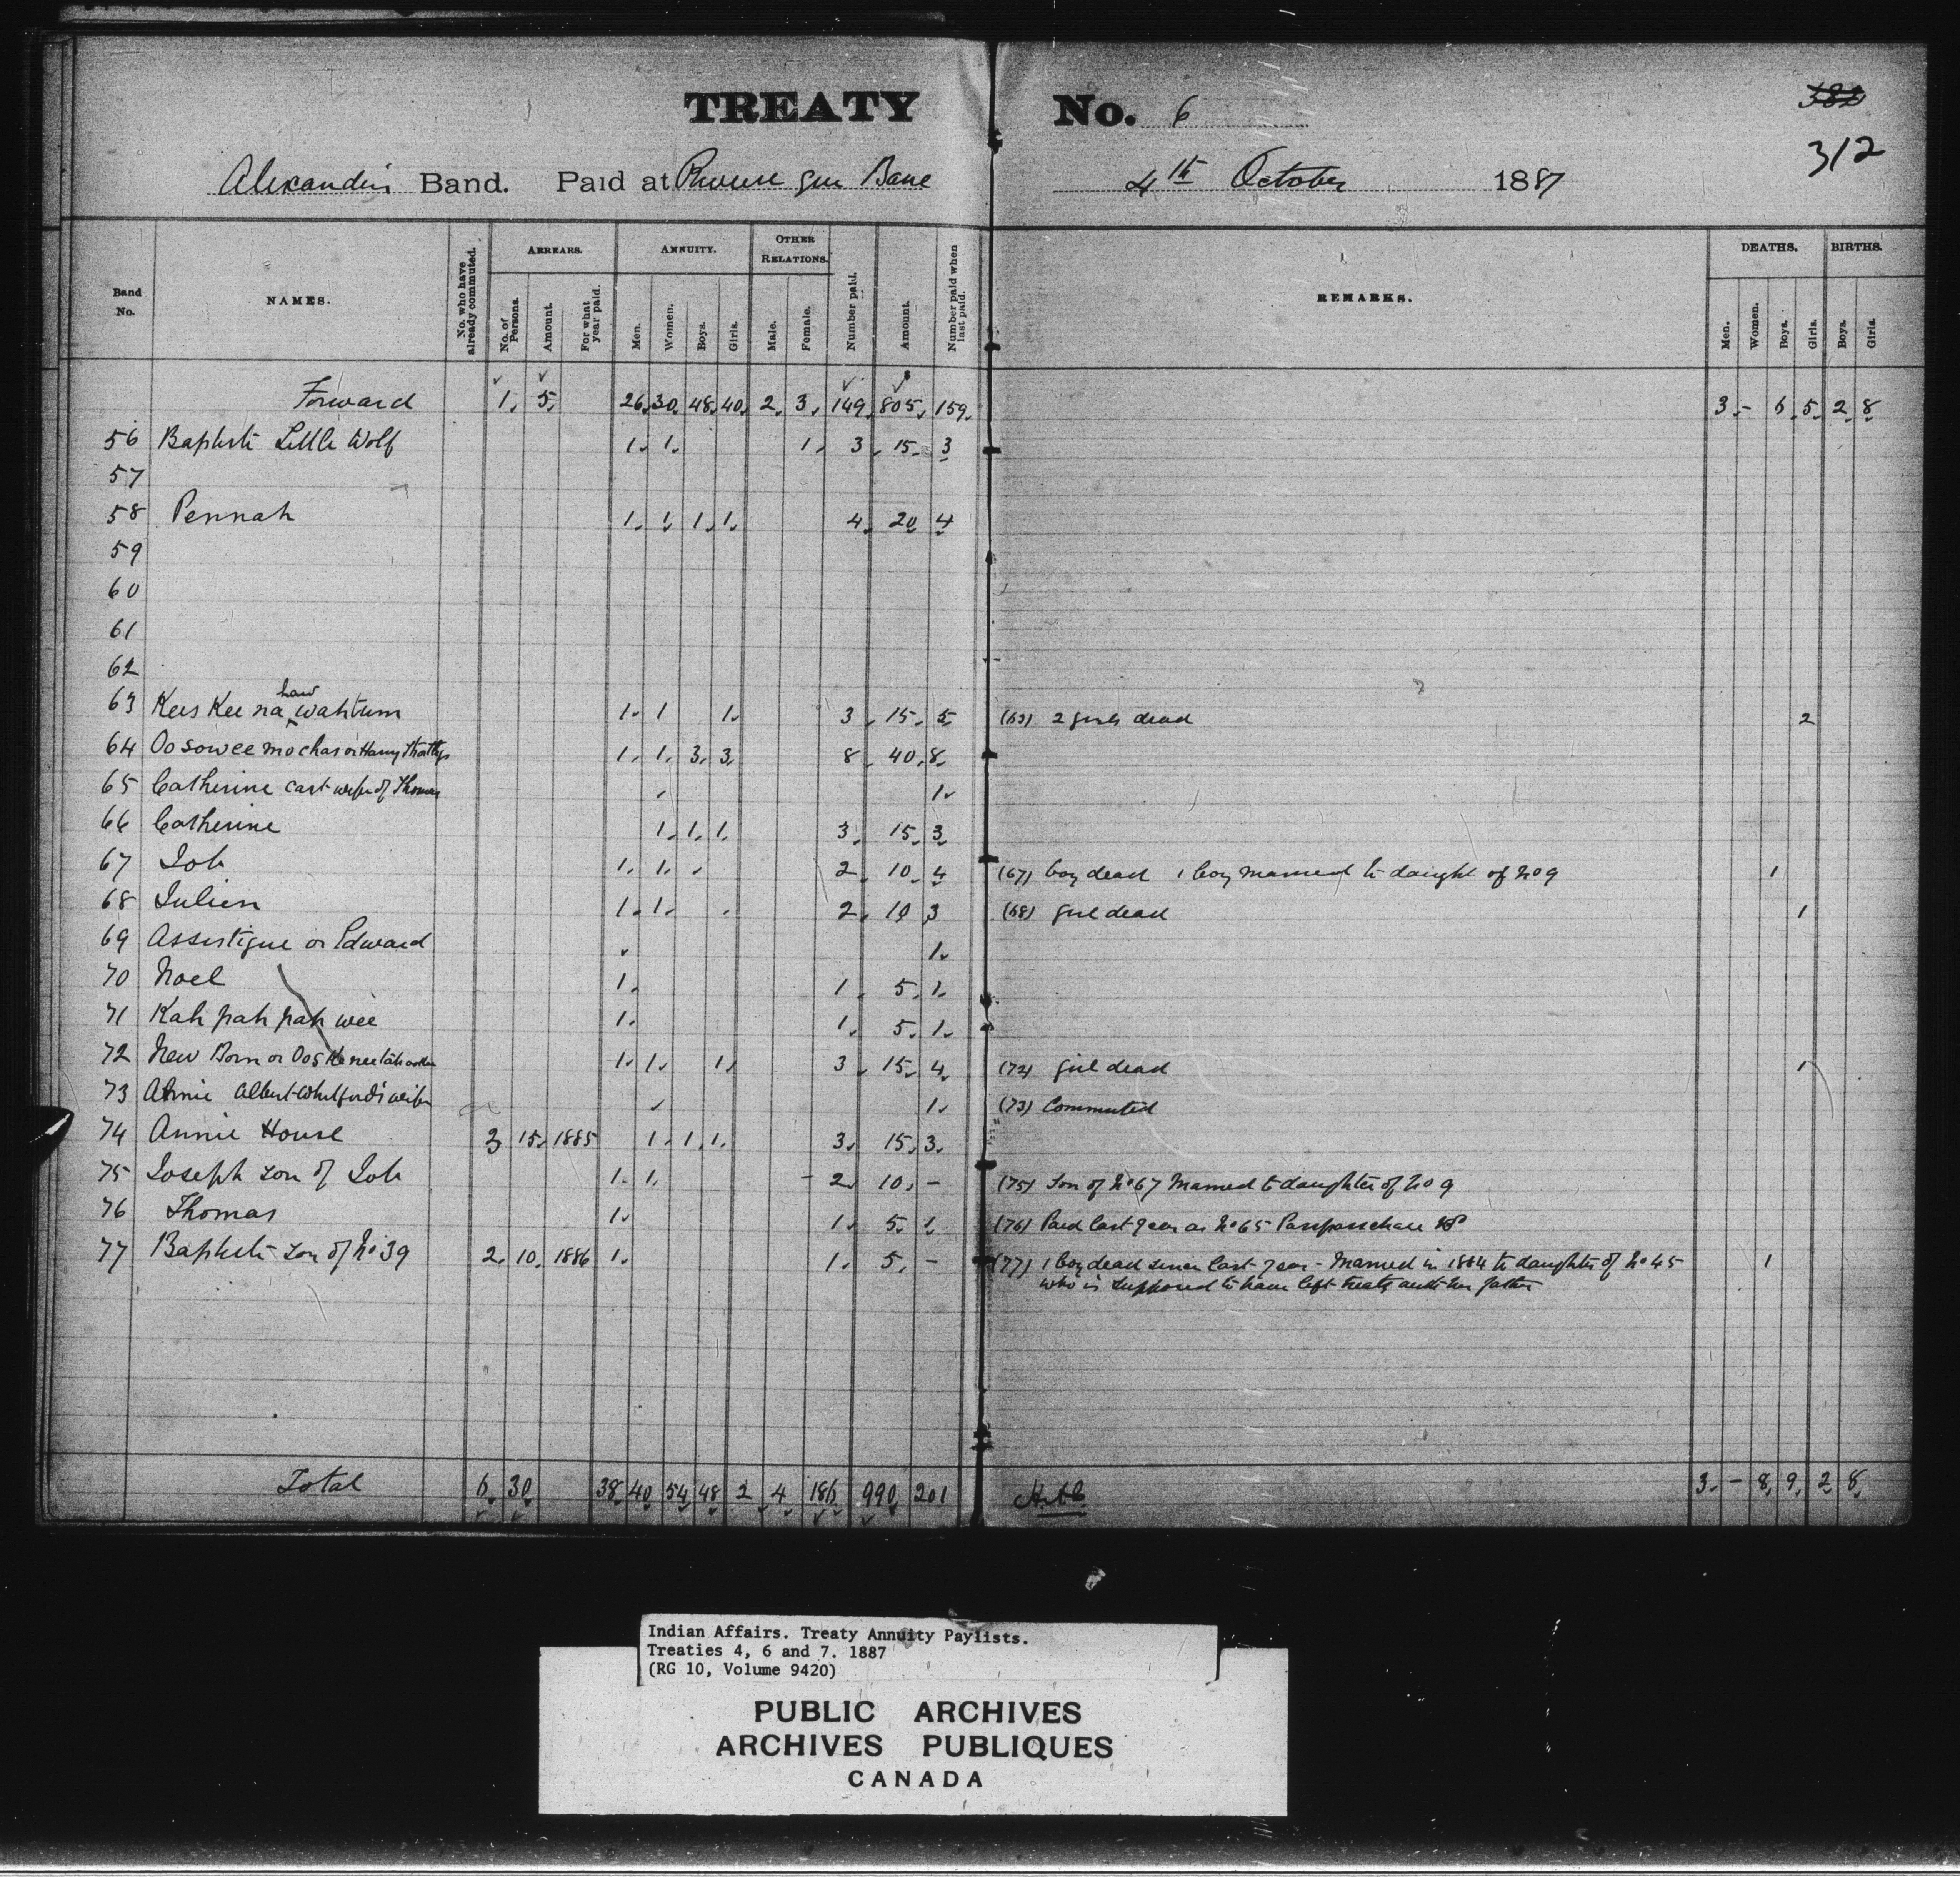 TREATY No. 6
382
312
Alexander's Band. Paid at Riviere Qui Barre 4th October 1887
Band No.
NAMES.
No. who have already commuted.
ARREARS.
No. of Persons.
Amount.
For what year paid.
ANNUITY.
Men.
Women.
Boys.
Girls.
OTHER RELATIONS.
Male.
Female.
Number paid.
Amount.
Number paid when last paid.
REMARKS.
DEATHS.
Men.
Women.
Boys.
Girls.
BIRTHS.
Boys.
Girls.
Forward 1. 5. 26. 30. 48. 40. 2. 3. 149. 805. 159. 3. - 6. 5. 2. 8
56 Baptiste Little Wolf 1. 1. 1. 3. 15. 3
57
58 Pennah 1. 1. 1. 1. 4. 20 4
59
60
61
62
63 Kees Kee na haw wahtum 1. 1 1. 3. 15. 5. (63) 2 girls dead 2
64 Oo sowee mo chas or Harry 1. 1. 3. 3. 8. 40. 8.
65 Catherine cast wife of Thomas 1.
66 Catherine 1. 1. 1. 3. 15. 3.
67 Job 1. 1. 2. 10. 4 (67) boy dead 1 boy married to daught of No 9 1
68 Julien 1. 1. 2. 10 3 (68) girl dead 1
69 Assistigue or Edward 1.
70 Noel 1. 1. 5. 1.
71 Kah pah pah wee 1. 1. 5. 1.
72 New Born or 1. 1. 1. 3. 15. 4. (72) girl dead 1
73 Annie Albert Whitford's wife 1. (73) Commuted
74 Annie House 3 15. 1885 1. 1. 1. 3. 15. 3.
75 Joseph son of Job 1. 1. - 2. 10. - (75) Son of No 67 Married to daughter of No 9
76 Thomas 1. 1. 5. 1. (76) Paid last year as No 65
77 Baptiste son of No 39 2. 10. 1886 1. 1. 5. - (77) 1 boy dead since last year - Married in 1884 to daughter of No 45 1
who is supposed to have left treaty with her father
Total 6. 30. 38. 40. 54. 48. 2 4. 186. 990. 201 3. - 8. 9. 2 8.
Indian Affairs. Treaty Annuity Paylists.
Treaties 4, 6 and 7. 1887
(RG 10, Volume 9420)
PUBLIC ARCHIVES
ARCHIVES PUBLIQUES
CANADA